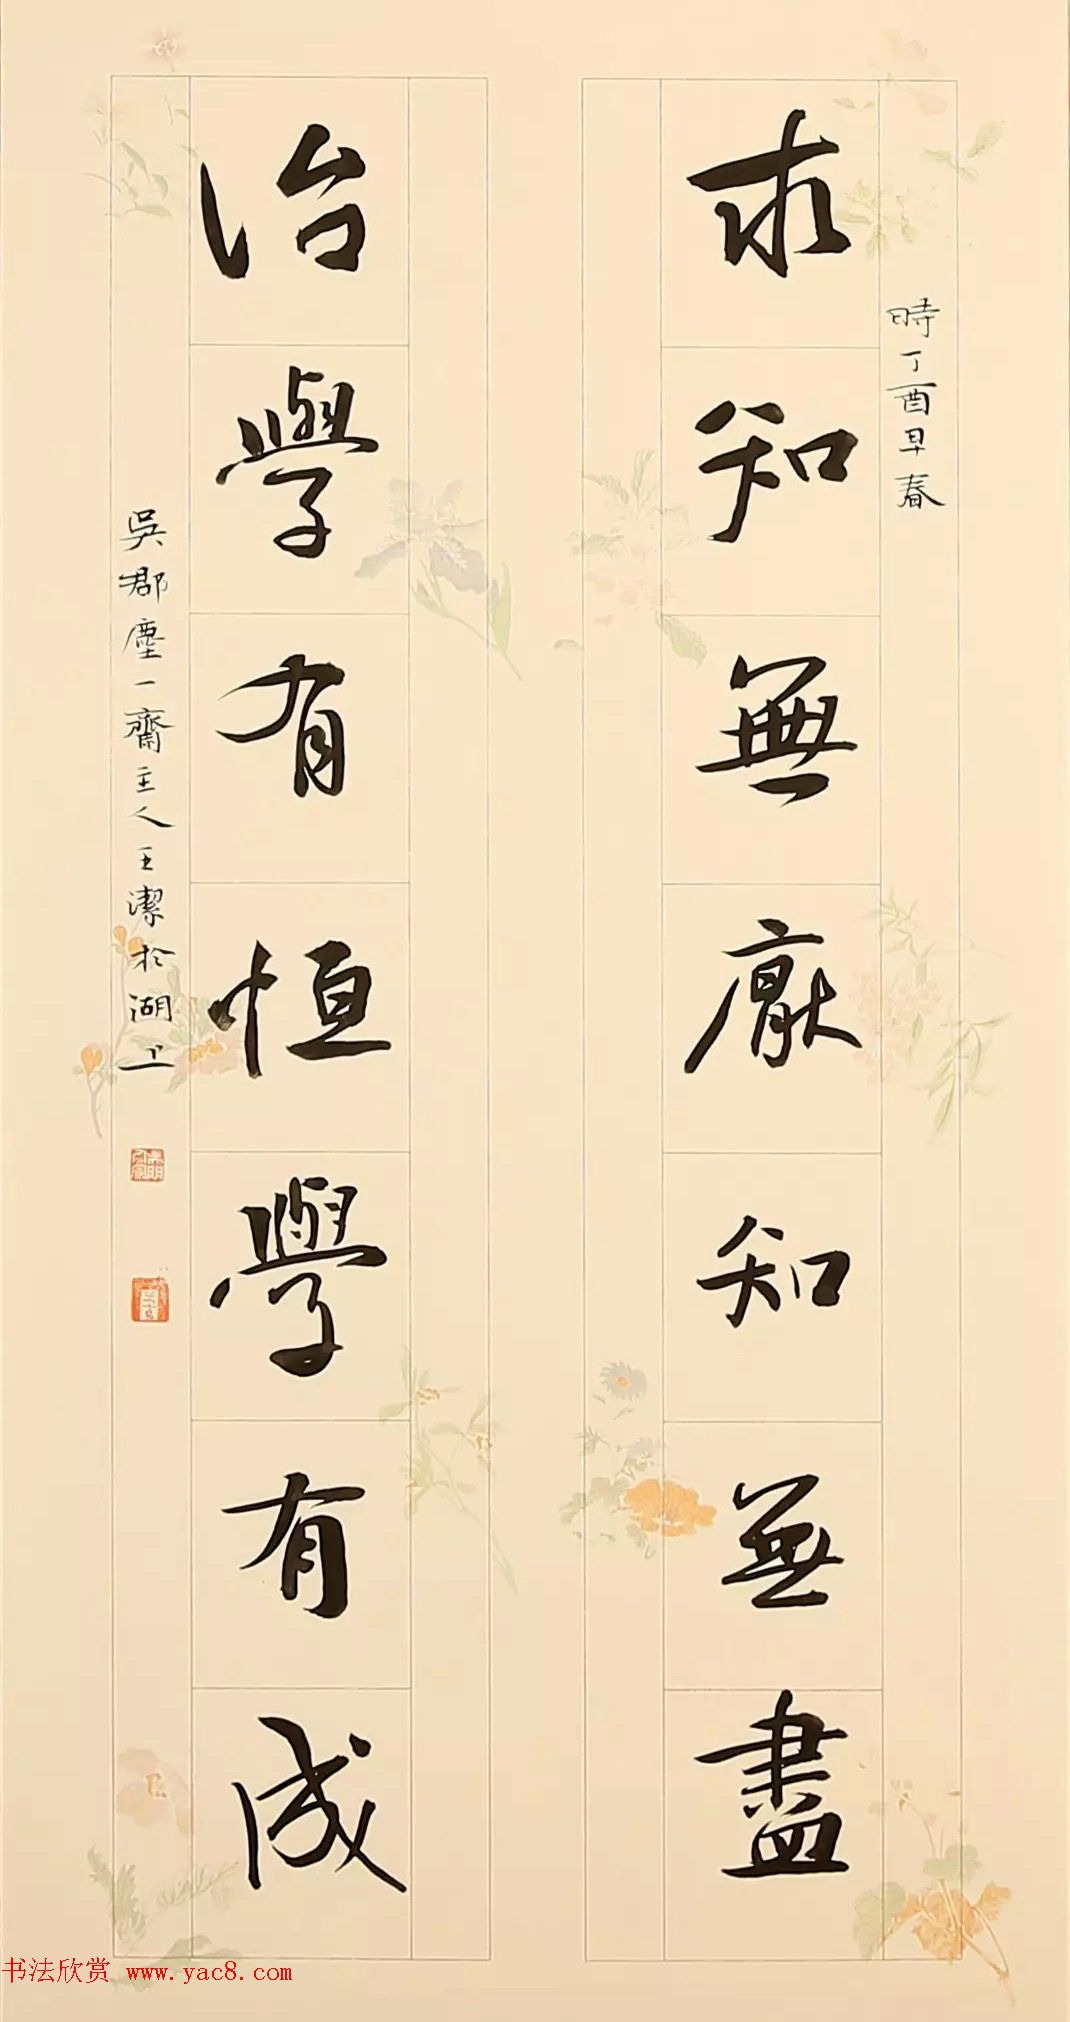 時丁酉早春
求知無厭知無盡
治學有恒學有成
吳郡塵一齋主人王潔於湖上
书法欣赏 www.yac8.com